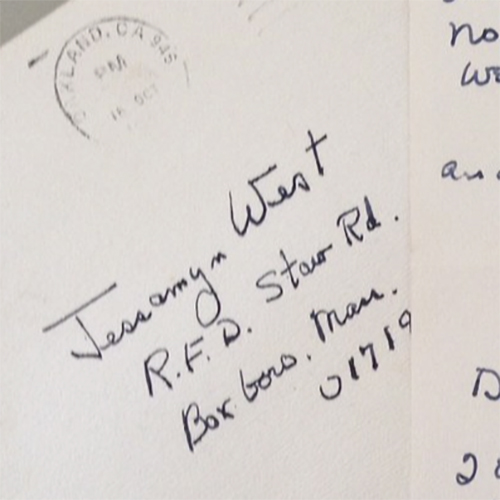 OAKLAND, CA 946
PM
OCT
Jessamyn West
R.F.D. Stow Rd.
Boxboro. Mass.
01719
no
we
D
2